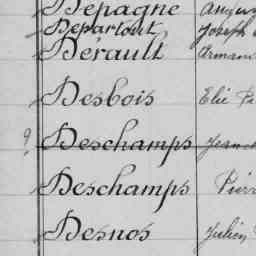 Depagne
Departout Joseph
Dérault Arman
Desbois Elie
? Deschamps Jean
Deschamps Pierr
Desnos Julien